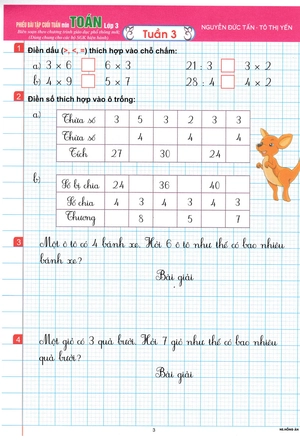 PHIẾU BÀI TẬP CUỐI TUẦN môn TOÁN Lớp 3
Biên soạn theo chương trình giáo dục phổ thông mới
(Dùng chung cho các bộ SGK hiện hành)
Tuần 3
NGUYỄN ĐỨC TẤN - TÔ THỊ YẾN
1 Điền dấu (>, <, =) thích hợp vào chỗ chấm:
a) 3 × 6 6 × 3 21 : 3 3 × 2
b) 4 × 9 5 × 7 28 : 4 4 × 2
2 Điền số thích hợp vào ô trống:
a)
Thừa số 3 5 3 2 3 3
Thừa số 4 4 4
Tích 27 30 24
b)
Số bị chia 24 36 40
Số chia 4 3 4 3 4 3
Thương 8 5 7
3 Một ô tô có 4 bánh xe. Hỏi 6 ô tô như thế có bao nhiêu
bánh xe?
Bài giải
4 Một giỏ có 3 quả bưởi. Hỏi 7 giỏ như thế có bao nhiêu
quả bưởi?
Bài giải
3